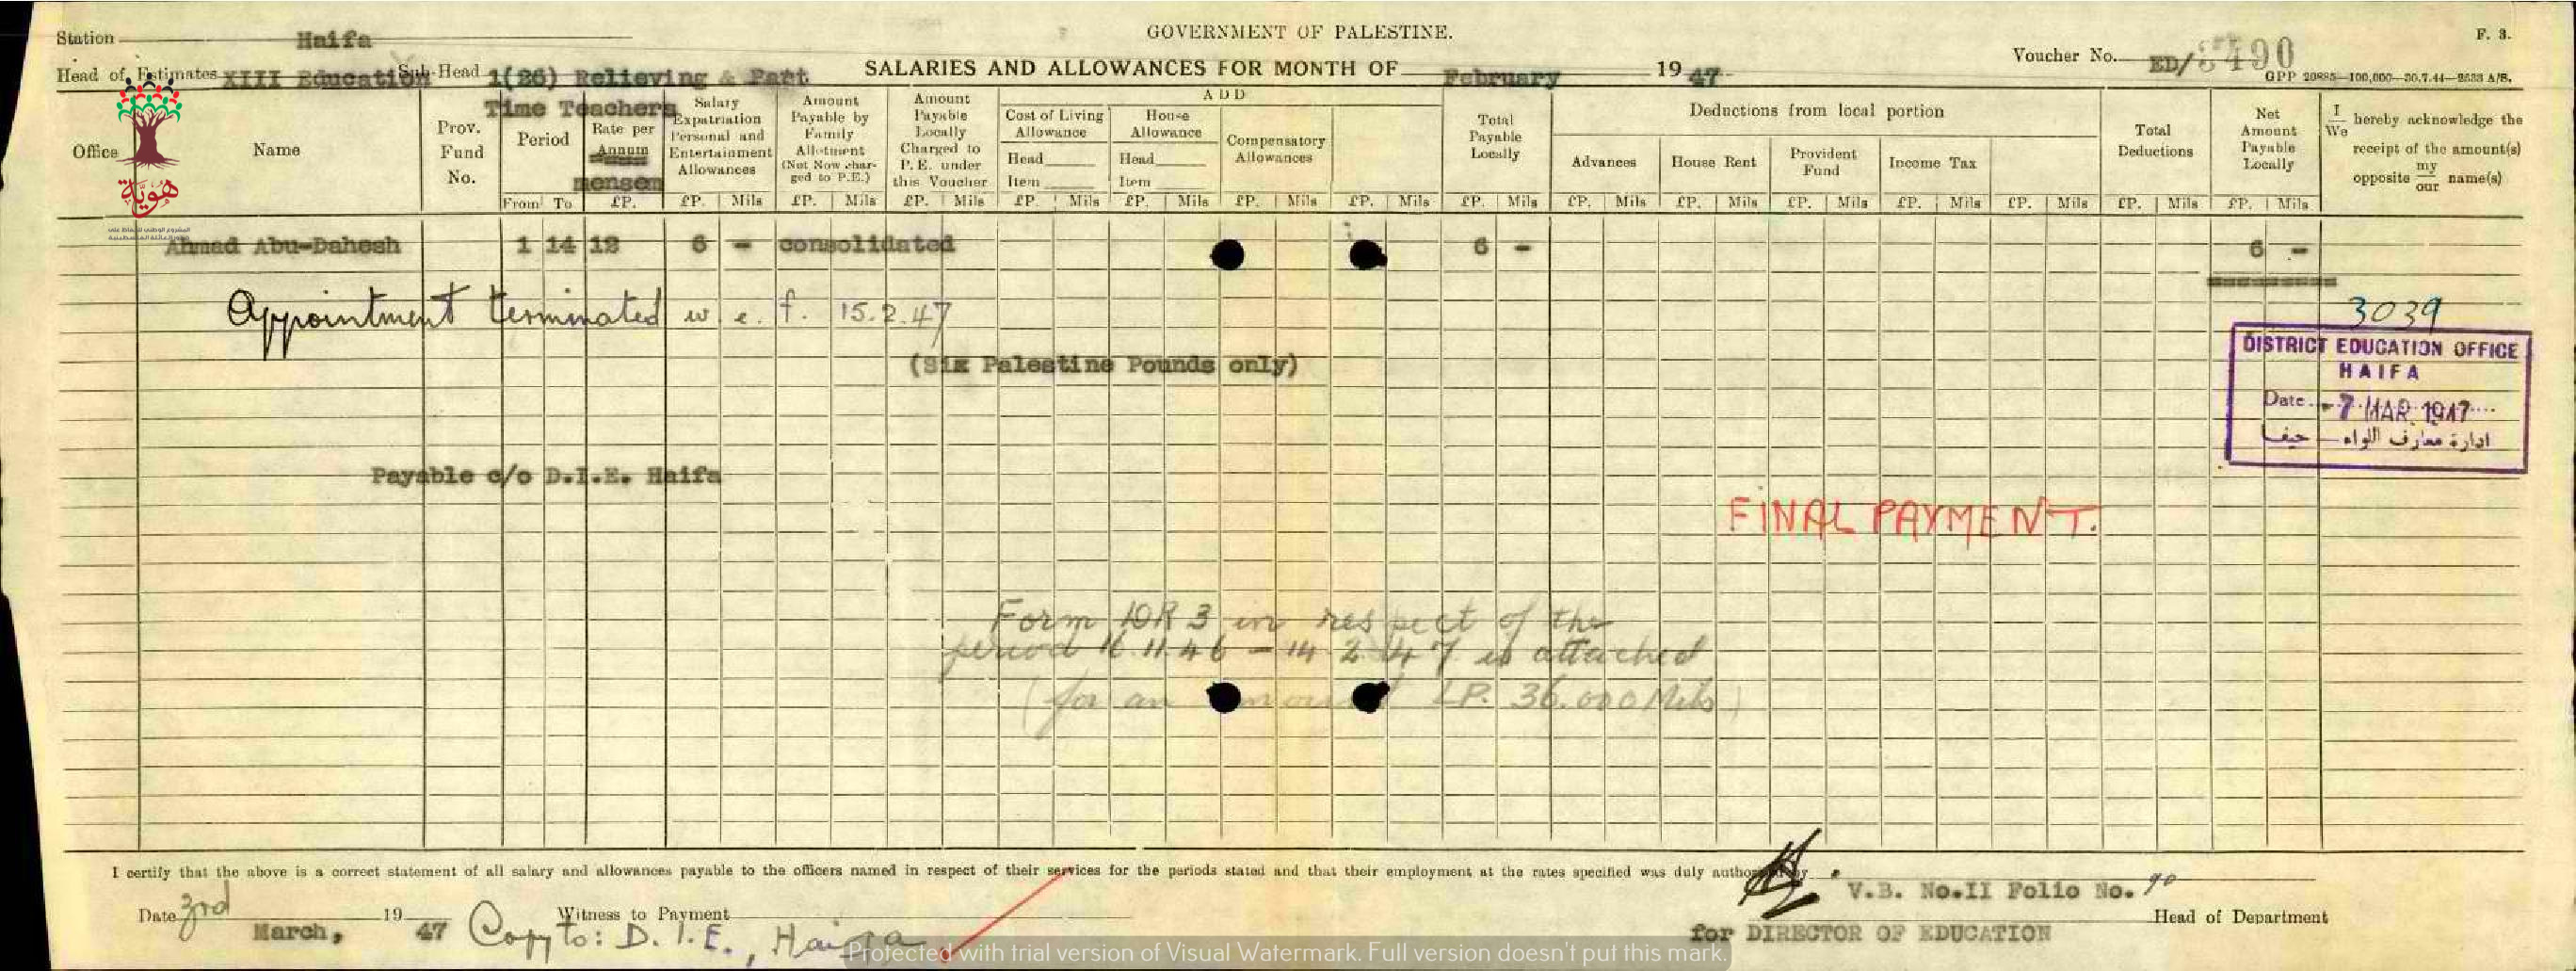 GOVERNMENT OF PALESTINE.
F. 3.
Station Haifa
Voucher No. ED/3490
Head of Estimates XIII Education Sub-Head 1(26) Relieving & Part
Time Teachers
SALARIES AND ALLOWANCES FOR MONTH OF February 1947
GPP 20885—100,000—30.7.44—2533 A/S.
Office
Name
Prov. Fund No.
Period
From To
Rate per Annum mensem
£P.
Salary Expatriation Personal and Entertainment Allowances
£P. Mils
Amount Payable by Family Allotment (Not Now charged to P.E.)
£P. Mils
Amount Payable Locally Charged to P.E. under this Voucher
£P. Mils
ADD
Cost of Living Allowance
Head
Item
£P. Mils
House Allowance
Head
Item
£P. Mils
Compensatory Allowances
£P. Mils
£P. Mils
Total Payable Locally
£P. Mils
Deductions from local portion
Advances
£P. Mils
House Rent
£P. Mils
Provident Fund
£P. Mils
Income Tax
£P. Mils
£P. Mils
Total Deductions
£P. Mils
Net Amount Payable Locally
£P. Mils
I We hereby acknowledge the receipt of the amount(s) opposite my our name(s)
هوية
Ahmad Abu-Dahesh 1 14 12 6 - consolidated 6 - 6 -
Appointment terminated w. e. f. 15.2.47
3039
(Six Palestine Pounds only)
DISTRICT EDUCATION OFFICE
HAIFA
Date - 7 MAR 1947
ادارة معارف اللواء — حيفا
Payable c/o D.I.E. Haifa
FINAL PAYMENT.
Form IOR 3 in respect of the
period 16.11.46 - 14.2.47 is attached
(for an amount LP. 36.000 Mils)
I certify that the above is a correct statement of all salary and allowances payable to the officers named in respect of their services for the periods stated and that their employment at the rates specified was duly
V.B. No.II Folio No. 90
Date 3rd March, 1947
Witness to Payment
Head of Department
Copy to: D.I.E., Haifa
for DIRECTOR OF EDUCATION
Protected with trial version of Visual Watermark. Full version doesn't put this mark.